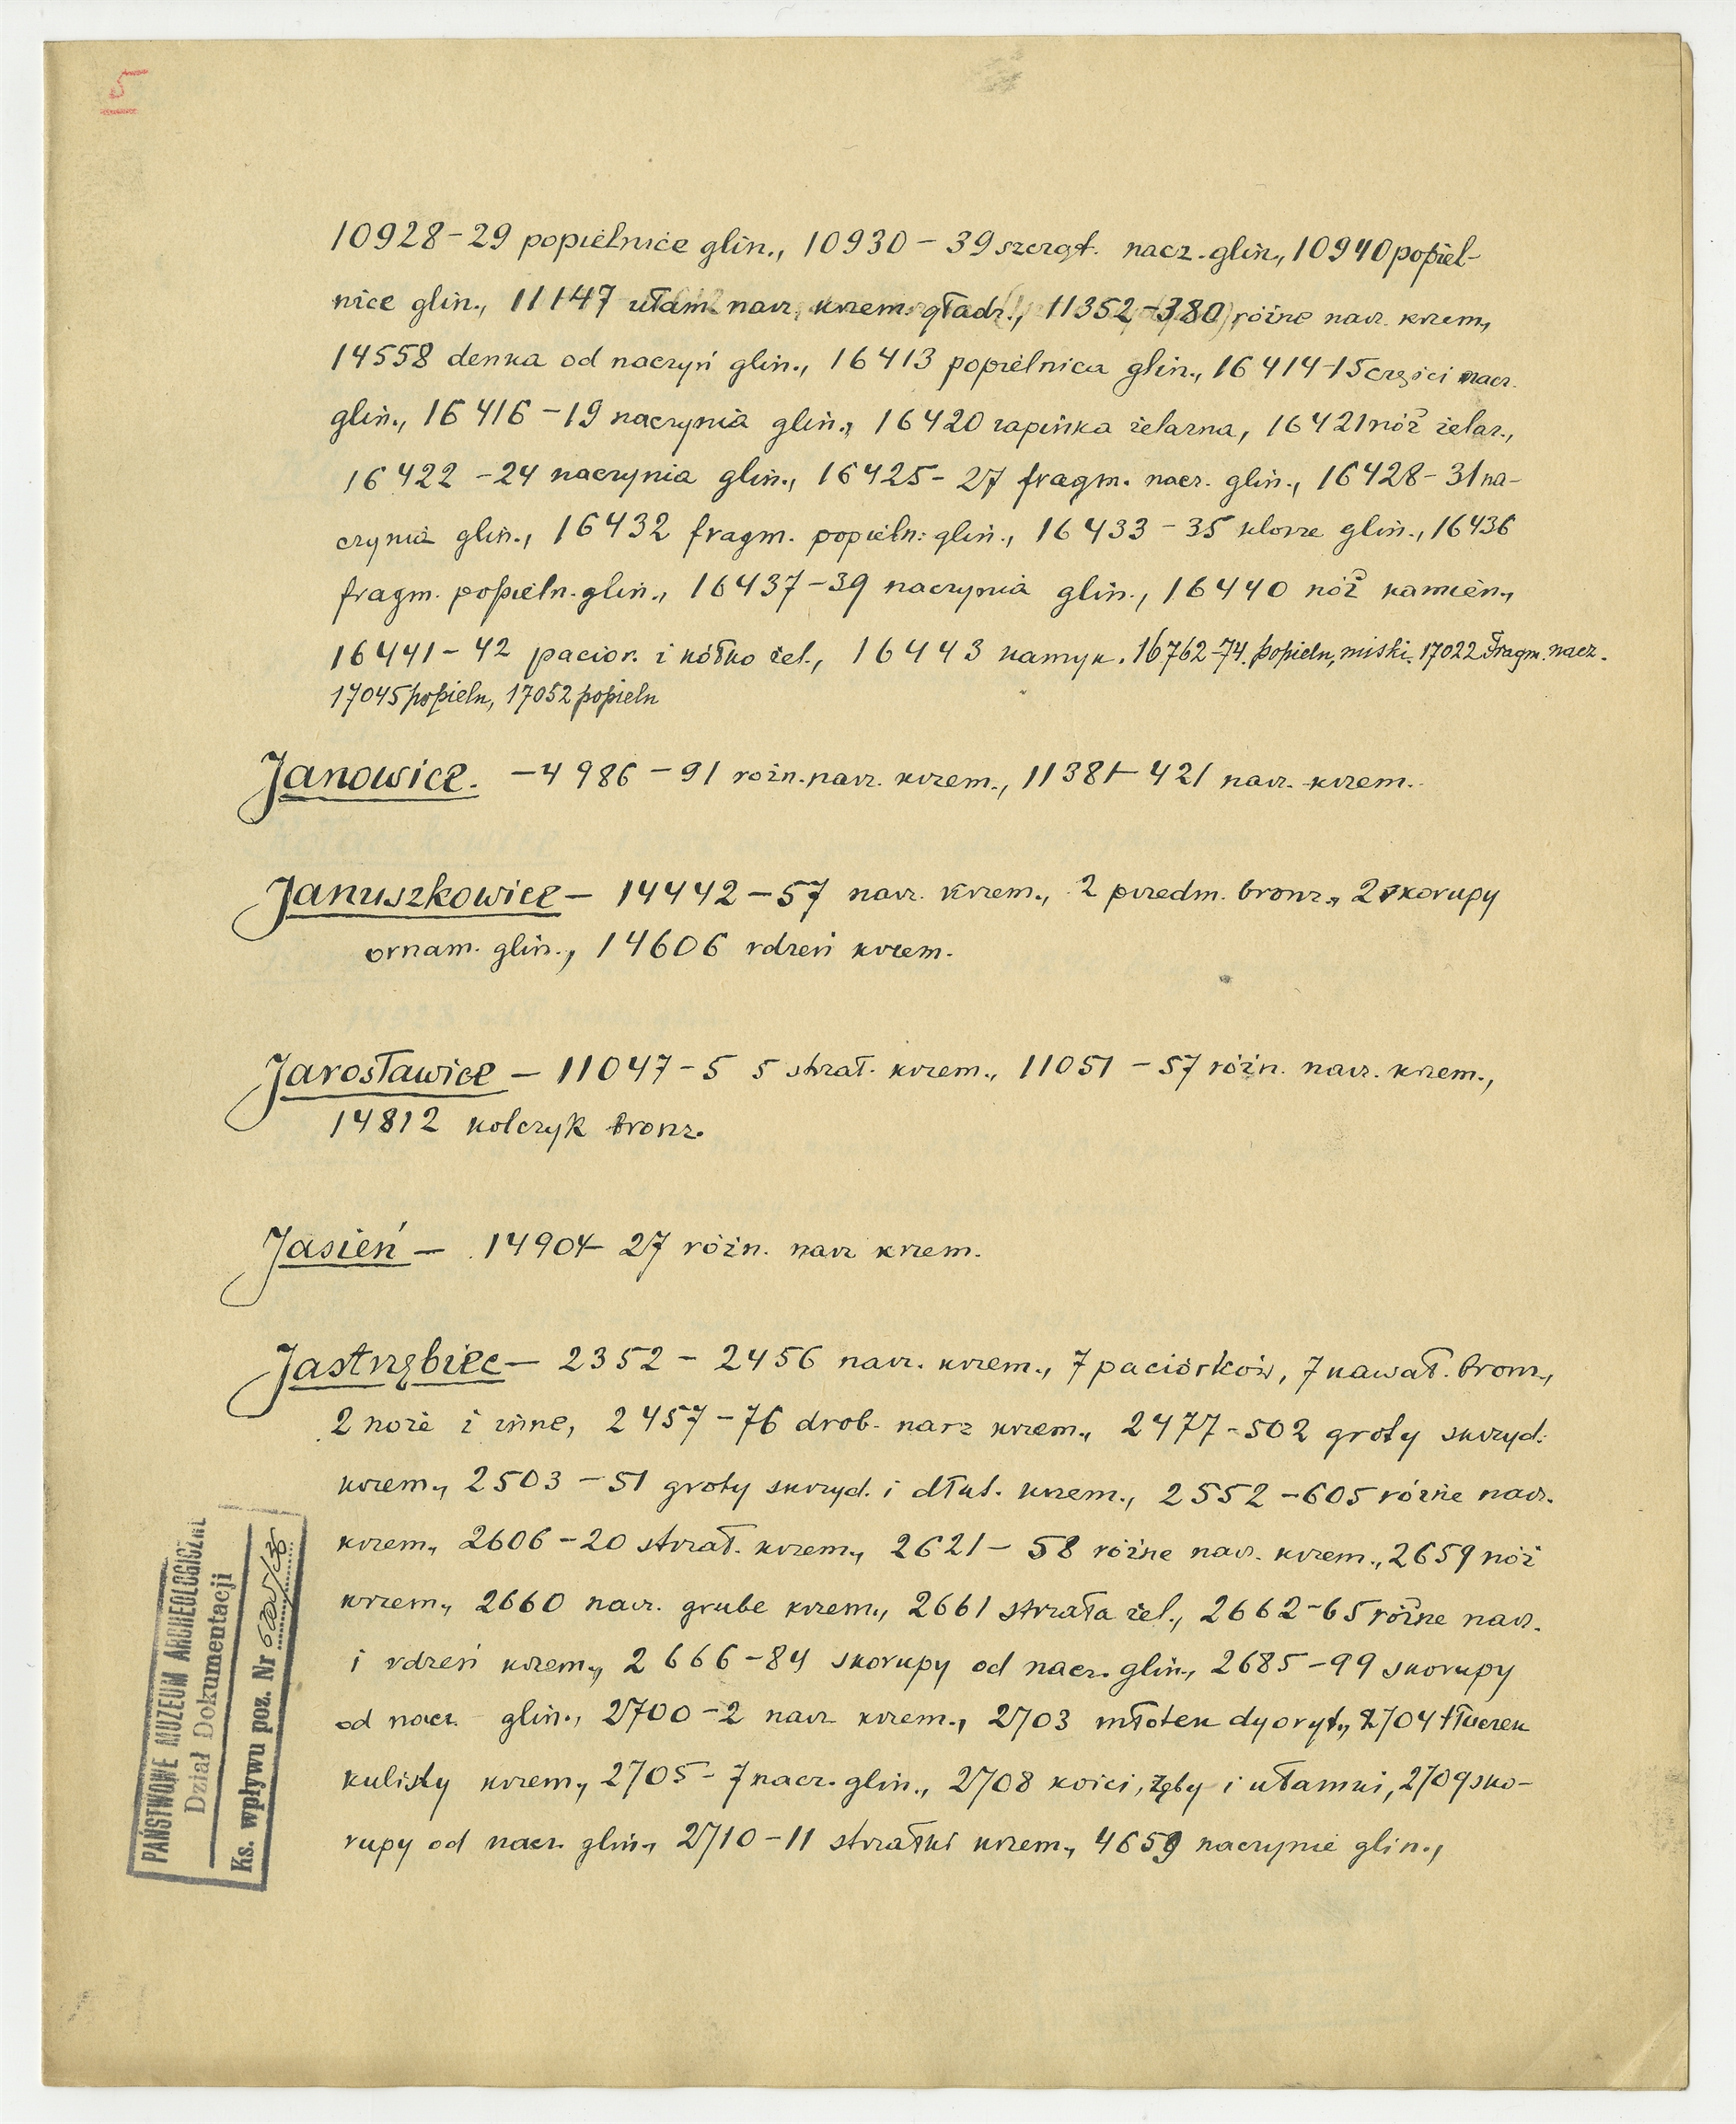 5
10928-29 popielnice glin., 10930-39 szcząt. nacz. glin., 10940 popiel-
nice glin., 11147 ułam. narz. krzem. gładz., 11352-380 różne narz. krzem.,
14558 denka od naczyń glin., 16413 popielnica glin., 16414-15 części nacz.
glin., 16416-19 naczynia glin., 16420 zapinka żelazna, 16421 nóż żelaz.,
16422-24 naczynia glin., 16425-27 fragm. nacz. glin., 16428-31 na-
czynia glin., 16432 fragm. popieln. glin., 16433-35 klosze glin., 16436
fragm. popieln. glin., 16437-39 naczynia glin., 16440 nóż kamien.,
16441-42 pacior. i kółko żel., 16443 kamyk. 16762-74. popieln, miski. 17022 fragm. nacz.
17045 popieln, 17052 popieln
Janowice. - 4986-91 rożn. narz. krzem., 11381-421 narz. krzem.
Januszkowice - 14442-57 narz. krzem., 2 przedm. bronz., 2 skorupy
ornam. glin., 14606 rdzeń krzem.
Jarosławice - 11047-5 5 strzał. krzem., 11051-57 różn. narz. krzem.,
14812 kolczyk bronz.
Jasień - 14904-27 różn. narz krzem.
Jastrzębiec - 2352-2456 narz. krzem., 7 paciórków, 7 kawał. bronz.,
2 noże i inne, 2457-76 drob. narz krzem., 2477-502 groty skrzyd.
krzem., 2503-51 groty skrzyd. i dłut. krzem., 2552-605 różne narz.
krzem., 2606-20 strzał. krzem., 2621-58 różne narz. krzem., 2659 nóż
krzem., 2660 narz. grube krzem., 2661 strzała żel., 2662-65 różne narz.
i rdzeń krzem., 2666-84 skorupy od nacz. glin., 2685-99 skorupy
od nacz. glin., 2700-2 narz krzem., 2703 młotek dyoryt., 2704 tłuczek
kulisty krzem., 2705-7 nacz. glin., 2708 kości, zęby i ułamki, 2709 sko-
rupy od nacz. glin., 2710-11 strzałki krzem., 4659 naczynie glin.,
PAŃSTWOWE MUZEUM ARCHEOLOGICZNE
Dział Dokumentacji
Ks. wpływu poz. Nr